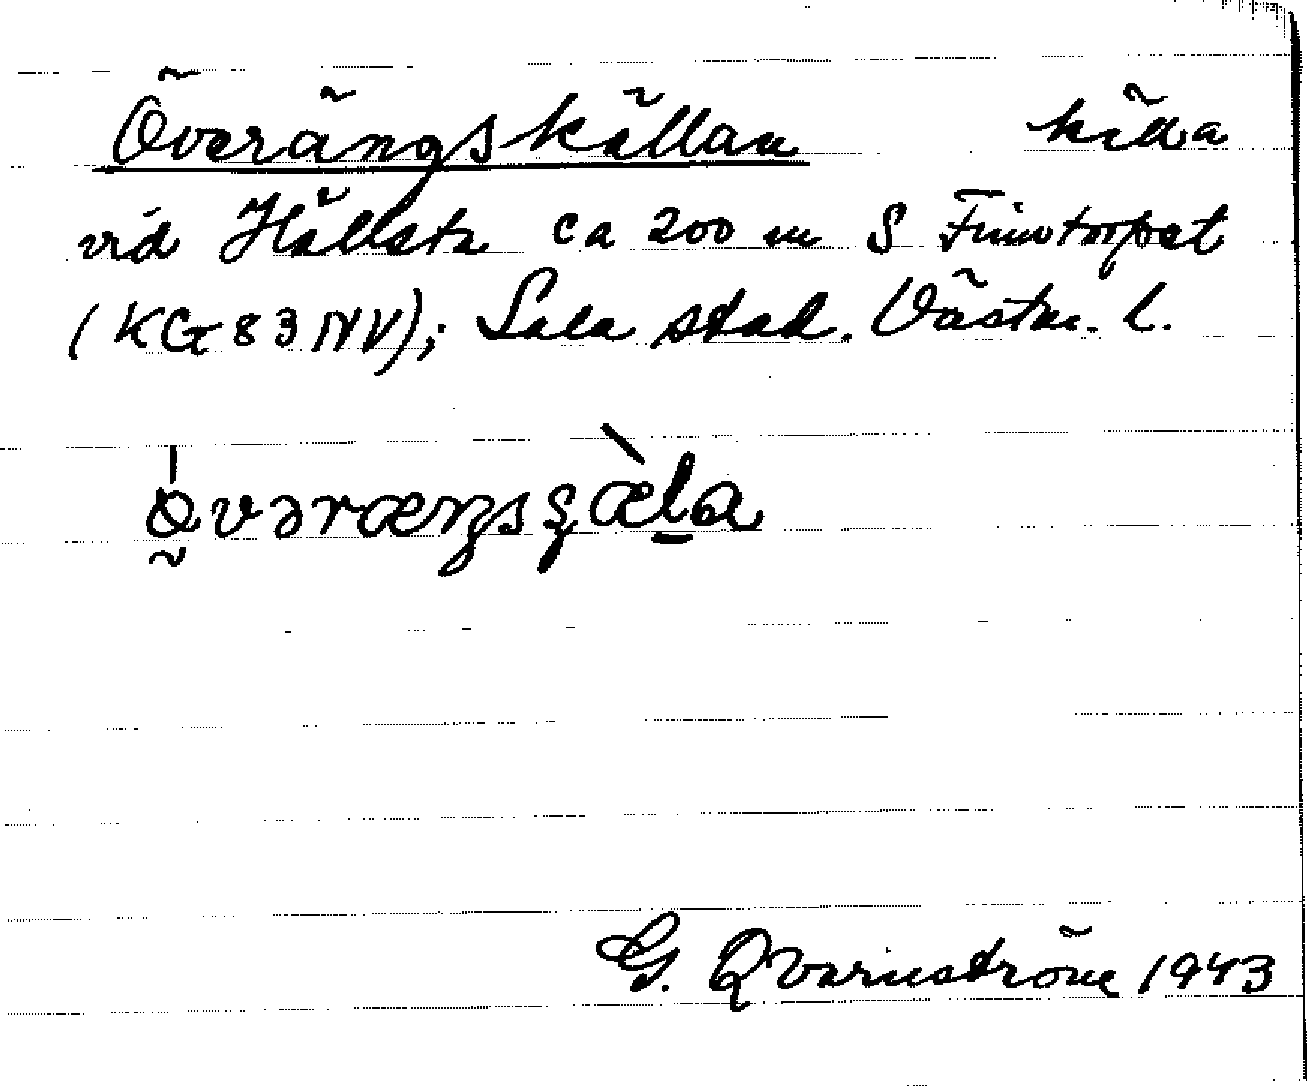 Överängskällan källa
vid Hällsta ca 200 m S Finntorpet
(KG 83 NV); Sala stad. Västm. l.
øvəræŋsçæ̀la
G. Qvarnström 1943